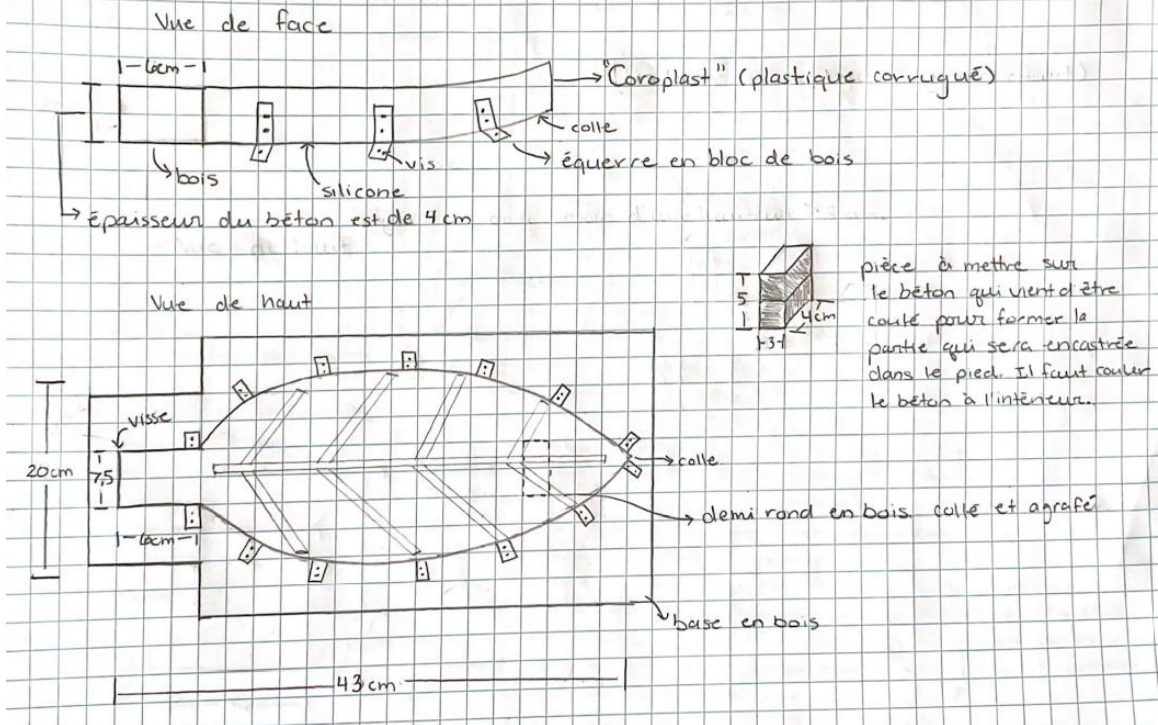 Vue de face
|-6cm-|
"Coroplast" (plastique corrugué)
colle
vis
équerre en bloc de bois
bois
silicone
épaisseur du béton est de 4 cm
Vue de haut
5
4cm
|-3-|
pièce à mettre sur
le béton qui vient d'être
coulé pour former la
partie qui sera encastrée
dans le pied. Il faut couler
le béton à l'intérieur.
visse
20cm
7,5
colle
|-6cm-|
demi rond en bois collé et agrafé
base en bois
43 cm